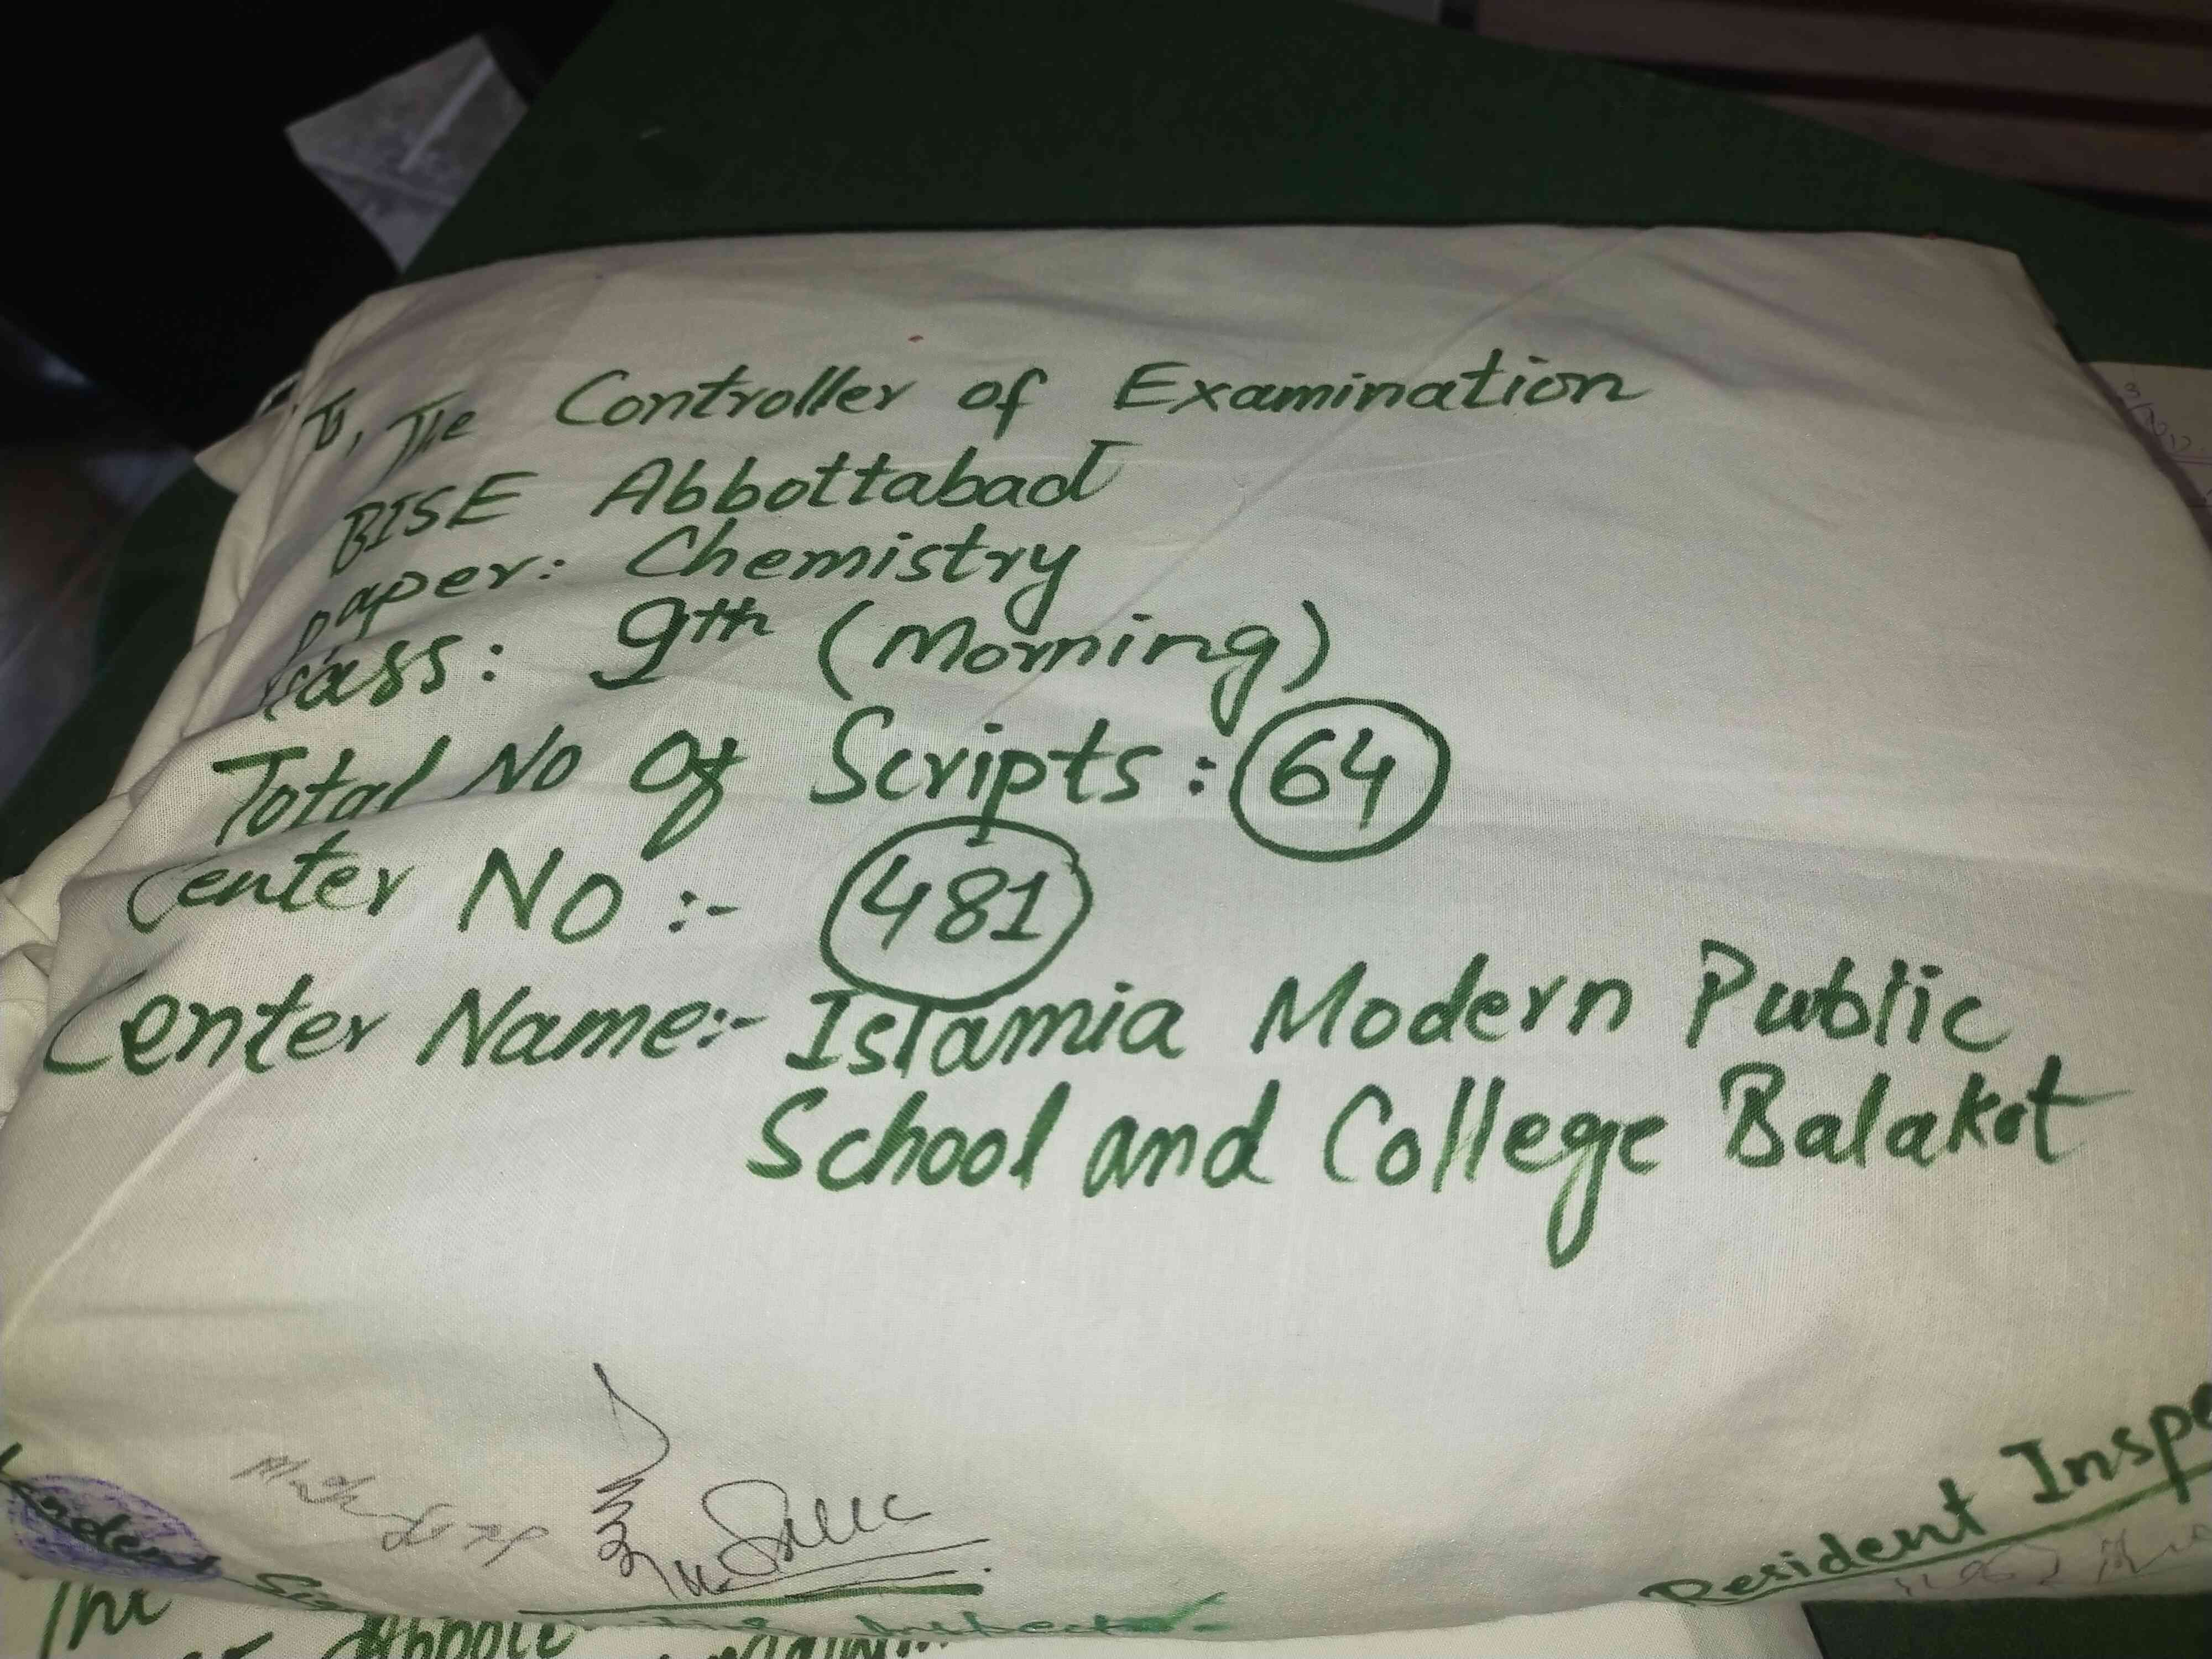 To, The Controller of Examination
BISE Abbottabad
paper: Chemistry
Class: 9th (Morning)
Total No Of Scripts: 64
Center No :- 481
Center Name:- Islamia Modern Public
School and College Balakot
Resident Inspe
The